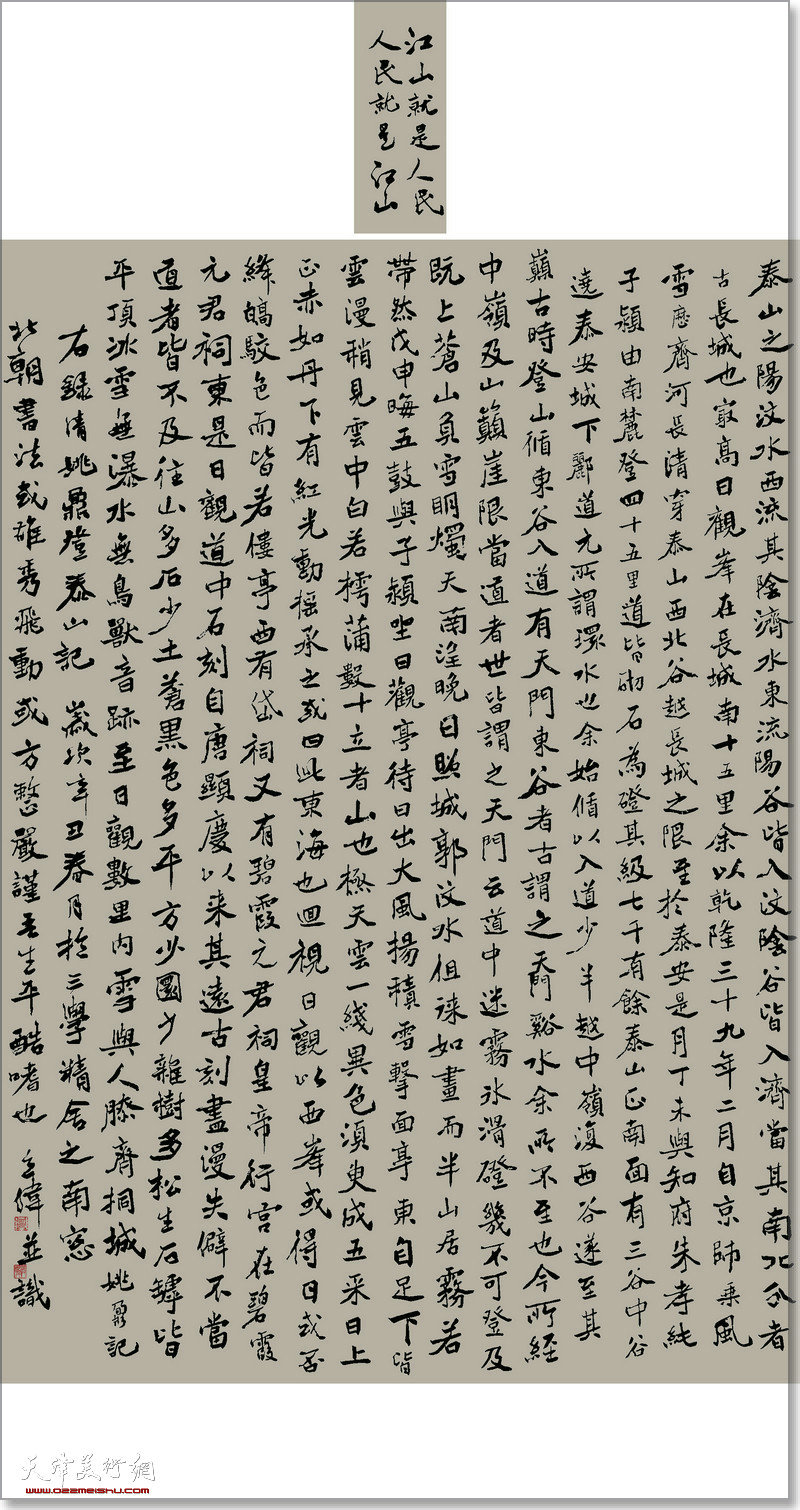 江山就是人民
人民就是江山
泰山之陽汶水西流其陰濟水東流陽谷皆入汶陰谷皆入濟當其南北分者
古長城也最高日觀峯在長城南十五里余以乾隆三十九年二月自京師乘風
雪歷齊河長清穿泰山西北谷越長城之限至於泰安是月丁未與知府朱孝純
子潁由南麓登四十五里道皆砌石為磴其級七千有餘泰山正南面有三谷中谷
遶泰安城下酈道元所謂環水也余始循以入道少半越中嶺復西谷遂至其
巔古時登山循東谷入道有天門東谷者古謂之天門谿水余所不至也今所經
中嶺及山巔崖限當道者世皆謂之天門云道中迷霧冰滑磴幾不可登及
既上蒼山負雪明燭天南望晚日照城郭汶水徂徠如畫而半山居霧若
帶然戊申晦五鼓與子潁坐日觀亭待日出大風揚積雪擊面亭東自足下皆
雲漫稍見雲中白若樗蒲數十立者山也極天雲一綫異色須臾成五采日上
正赤如丹下有紅光動搖承之或曰此東海也迴視日觀以西峯或得日或否
絳皜駁色而皆若僂亭西有岱祠又有碧霞元君祠皇帝行宮在碧霞
元君祠東是日觀道中石刻自唐顯慶以來其遠古刻盡漫失僻不當
道者皆不及往山多石少土蒼黑色多平方少圜少雜樹多松生石罅皆
平頂冰雪無瀑水無鳥獸音跡至日觀數里內雪與人膝齊桐城姚鼐記
右錄清姚鼐登泰山記 歲次辛丑春月於三學精舍之南窓
北朝書法或雄秀飛動或方整嚴謹吾生平酷嗜也 偉並識
天津美術網
www.022meishu.com